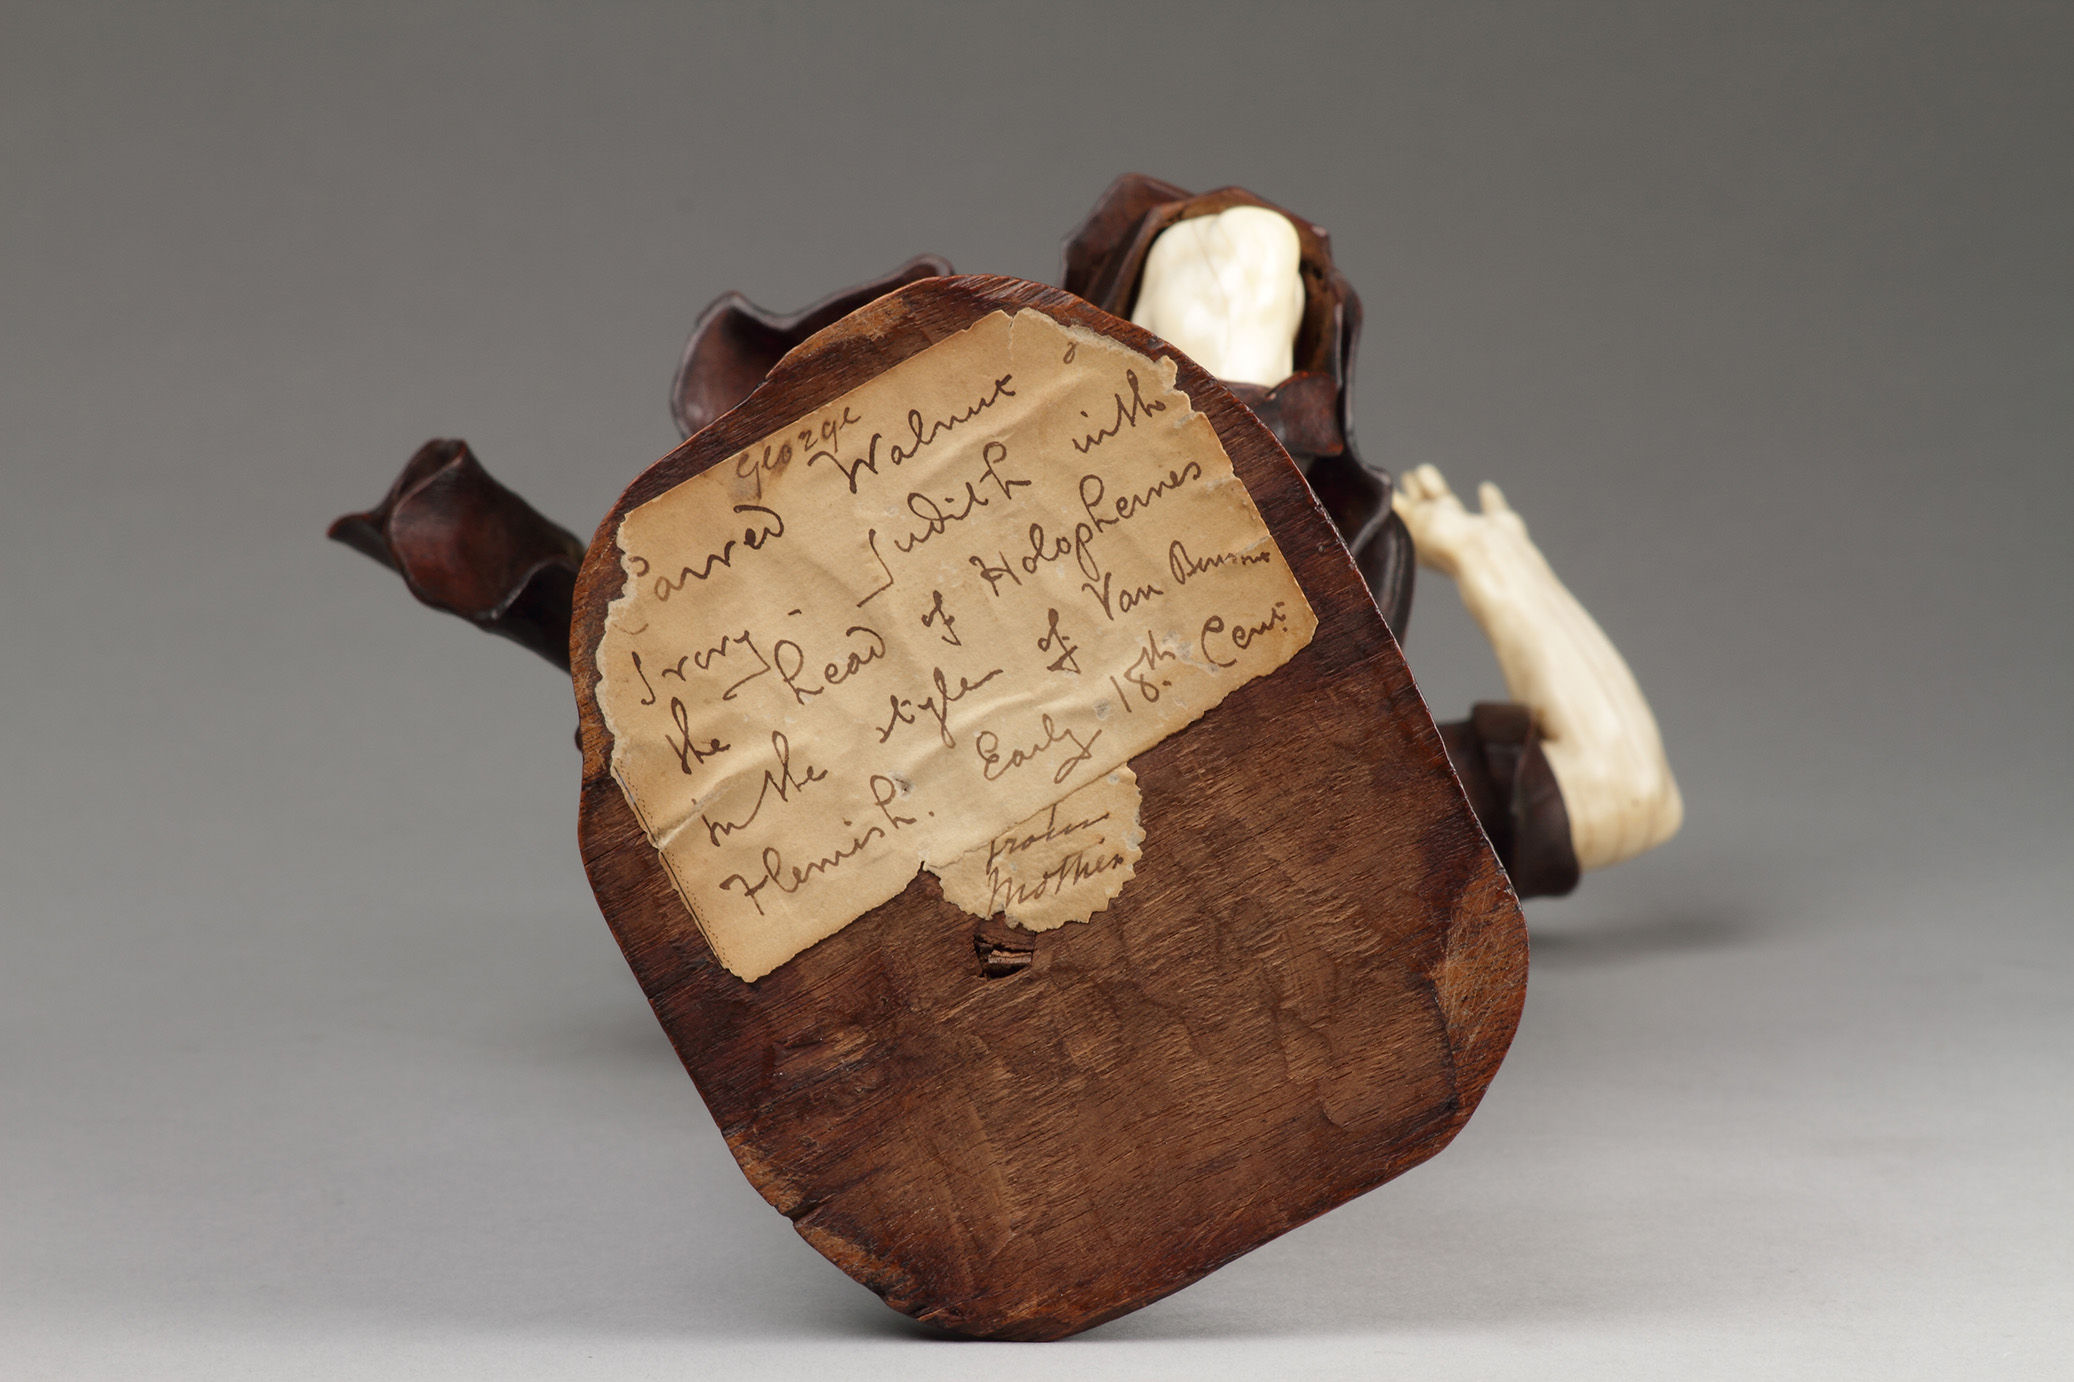 George
Carved Walnut &
Ivory - Judith with
the head of Holophernes
in the style of Van
Flemish. Early 18th. Cent.
from
Mother